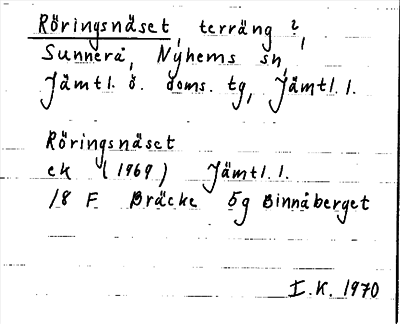 Röringsnäset, terräng ?,
Sunnerå, Nyhems sn,
Jämtl. ö. doms. tg, Jämtl. l.
Röringsnäset
ek (1969) Jämtl. l.
18 F Bräcke 5g Binnåberget
I.K. 1970